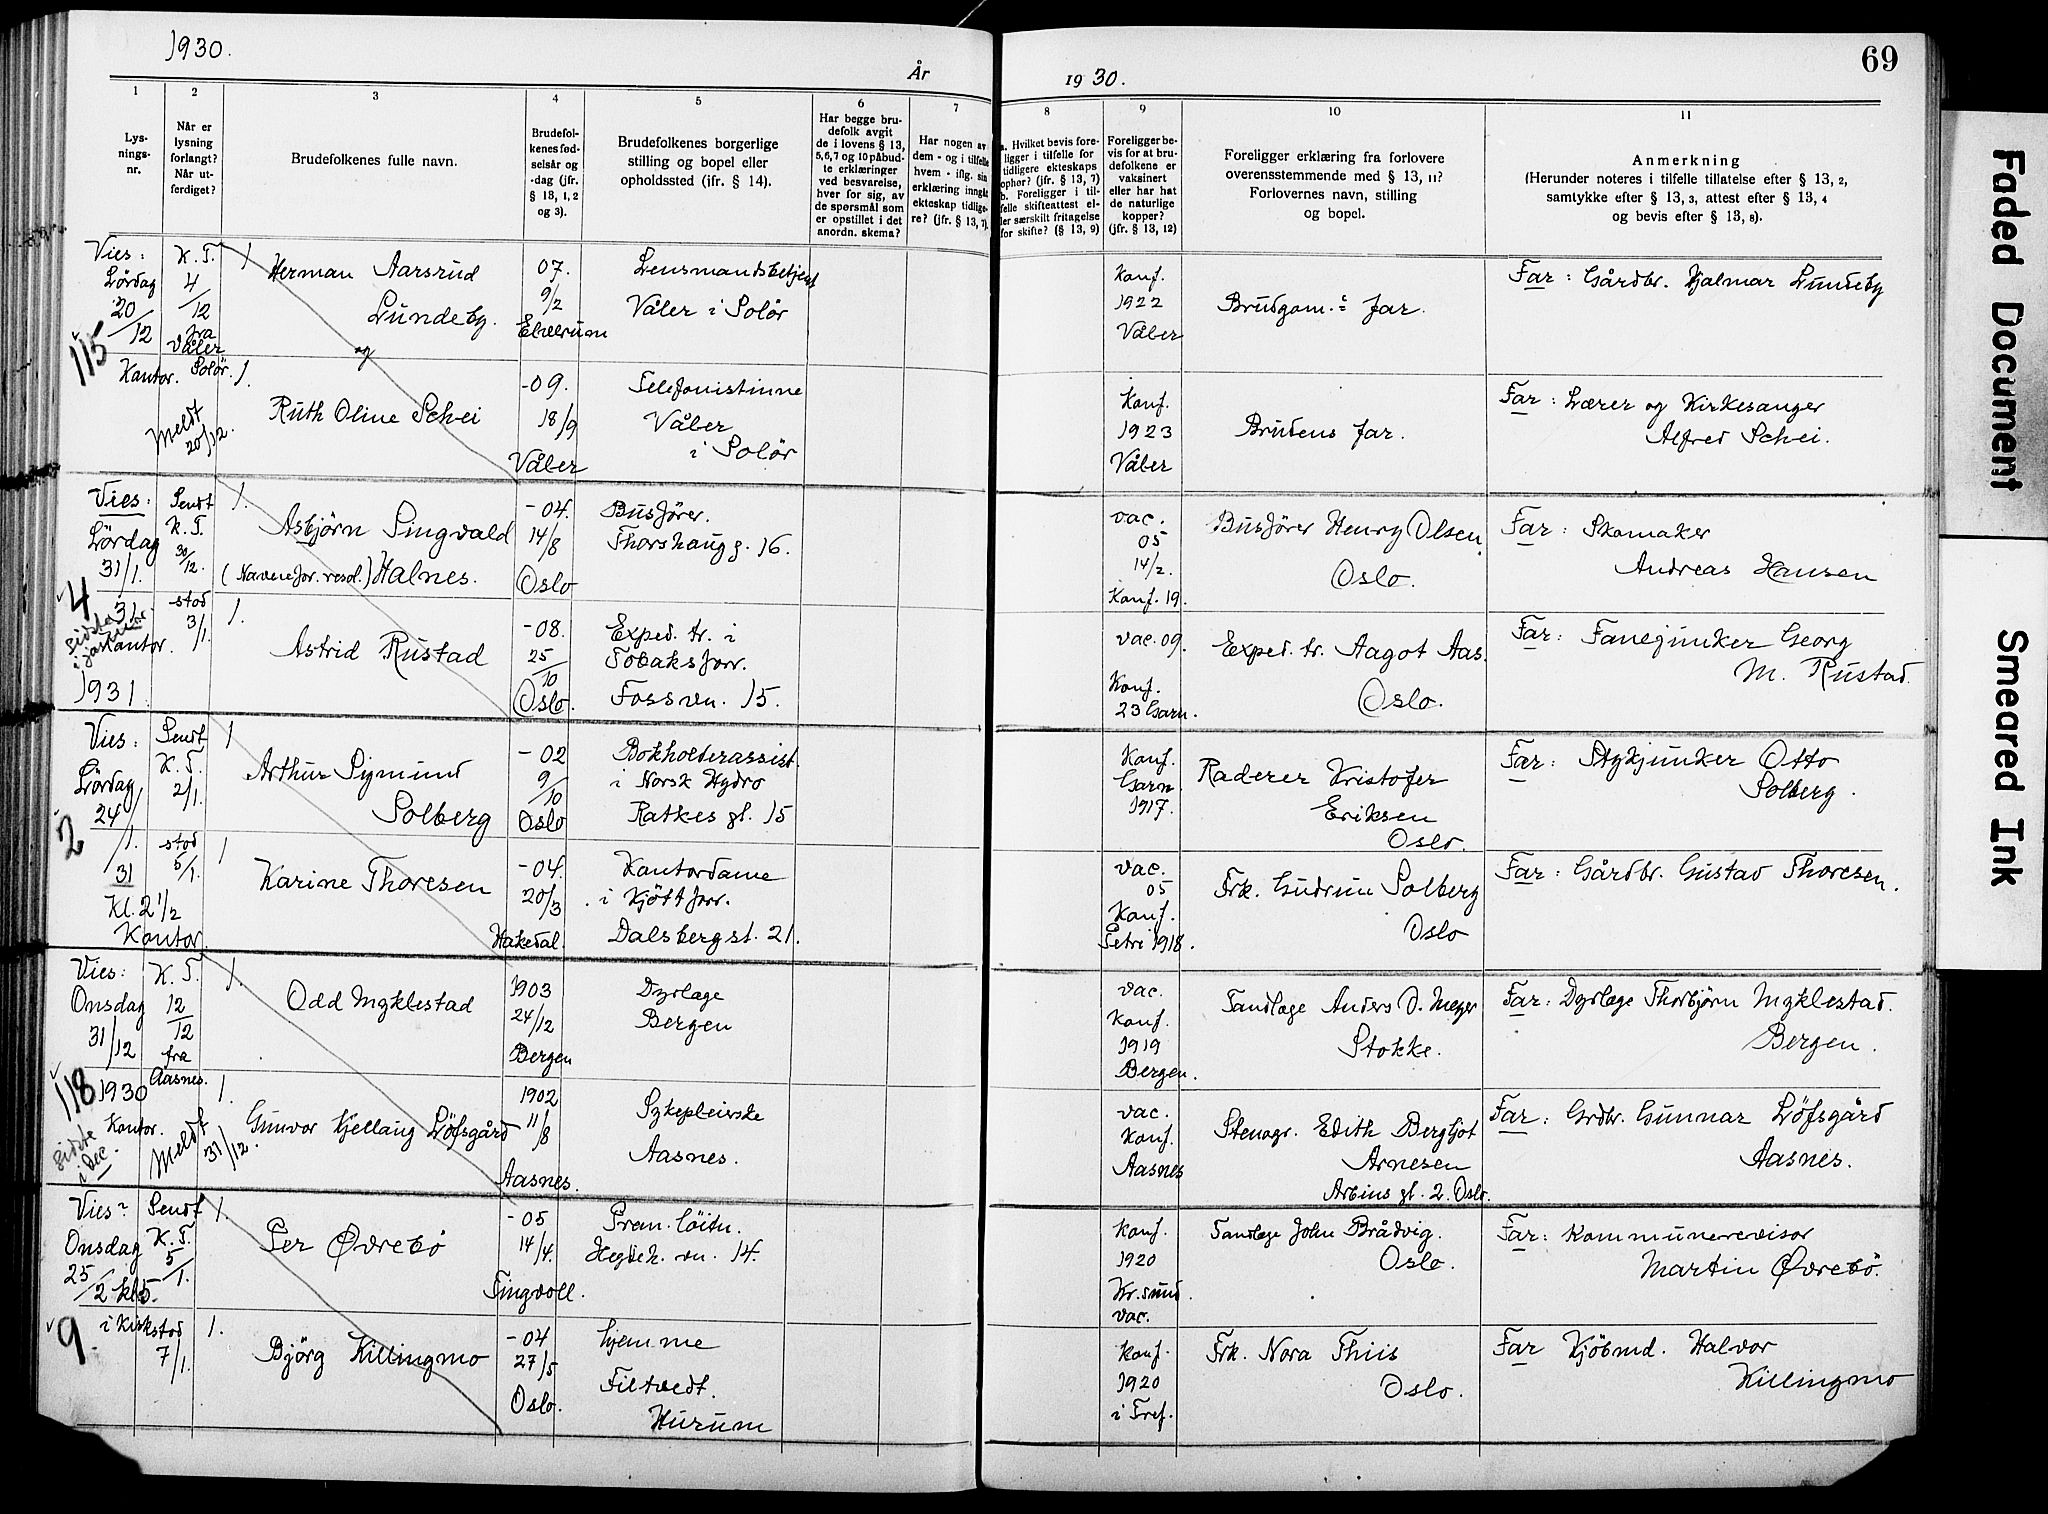 1930.
År
1930.
69
1
Lys-
nings-
nr.
2
Når er
lysning
forlangt?
Når ut-
ferdiget?
3
Brudefolkenes fulle navn.
4
Brudefol-
kenes fød-
selsår og
-dag (jfr.
§ 13, 1, 2
og 3).
5
Brudefolkenes borgerlige
stilling og bopel eller
opholdssted (ifr. § 14).
6
Har begge bru-
defolk avgit
de i lovens § 13,
5, 6, 7 og 10 påbud-
te erklæringer
ved besvarelse,
hver for sig, av
de spørsmål som
er opstillet i det
anordn. skema?
7
Har nogen av
dem - og i tilfelle
hvem - iflg. sin
erklæring inngåt
ekteskap tidlige-
re? (jfr. § 13, 7).
8
a. Hvilket bevis fore-
ligger i tilfelle for
tidligere ekteskaps
ophør? (jfr. § 13, 7)
b. Foreligger i til-
felle skifteattest el-
ler særskilt fritagelse
for skifte? (§ 13, 9)
9
Foreligger be-
vis for at bru-
defolkene er
vaksinert
eller har hat
de naturlige
kopper?
(jfr. § 13, 12)
10
Foreligger erklæring fra forlovere
overensstemmende med § 13, 11?
Forlovernes navn, stilling
og bopel.
11
Anmerkning
(Herunder noteres i tilfelle tillatelse efter § 13, 2,
samtykke efter § 13, 3, attest efter § 13, 4
og bevis efter § 13, 8).
Vies:
Lördag
20/12
115
Kontor.
K. T.
4/12
fra
Våler
Solör.
Meldt
20/12.
1
Herman Aarsrud
Lundeby.
og
07.
9/2
Elverum
Lensmandsbetjent
Våler i Solör
Konf.
1922
Våler
Brudgom.s far.
Far: Gårdbr. Hjalmar Lundeby
1.
Ruth Oline Schei
-09.
18/9
Våler
Telefonistinne
Våler
i Solör
Konf.
1923
Våler
Brudens far.
Far: Lærer og Kirkesanger
Alfred Schei.
Vies:
Lördag
31/1.
4
Kontor.
1931
Sendt
K. T.
30/12.
stod
3/1.
1.
Asbjörn Singvald
(Navneforr. resol.) Halnes.
-04.
14/8
Oslo
Bussförer.
Thorshaug g. 16.
vac.
05
14/2.
Konf. 19.
Bussförer Henry Olsen
Oslo.
Far: Skomaker
Andreas Hansen
1.
Astrid Rustad
-08.
25/10
Oslo.
Exped. tr. i
Tobaksforr.
Fossvn. 15.
vac. 09.
Konf.
23 Garn.
Exped. tr. Aagot Aas.
Oslo.
Far: Fanejunker Georg
M. Rustad.
Vies:
Lördag
24/1.
31
Kl. 2 1/2
Kontor.
2
Sendt
K. T.
2/1.
stod
5/1.
1
Arthur Sigmund
Solberg
-02
9/10
Oslo
Bokholderassist.
i Norsk Hydro
Ratkes gt. 15
Konf.
Garn.
1917.
Raderer Kristofer
Eriksen
Oslo.
Far: Stykjunker Otto
Solberg.
1
Karine Thoresen
-04.
20/3
Hakedal.
Kontordame
i Kjöttforr.
Dalsbergst. 21.
vac.
05
Konf.
Petri 1918.
Frk. Gudrun Solberg
Oslo
Far: Gårdbr. Gustav Thoresen.
Vies:
Onsdag
31/12
1930
118
Kontor.
sidste
i dec.
K. T.
12/12
fra
Aasnes.
Meldt
31/12.
1.
Odd Myklestad
1903
24/12
Bergen
Dyrlæge
Bergen
vac.
Konf.
1919
Bergen.
Tandlæge Anders O. Meyer
Stokke.
Far: Dyrlæge Thorbjörn Myklestad.
Bergen.
1.
Gunvor Kjellaug Löfsgård
1902
11/8
Aasnes.
Sykepleierske
Aasnes.
vac.
Konf.
Aasnes
Stenogr. Edith Bergljot
Arnesen
Arbins gt. 2. Oslo.
Far: Grdbr. Gunnar Löfsgård
Aasnes.
Vies?
Onsdag
25/2 kl. 5.
i Kirk
9.
Sendt
K. T.
5/1.
stod
7/1.
1.
Per Øvrebö
-05
14/4.
Tingvoll.
Prem. löitn.
Hegdeh. vn. 14.
Konf.
1920
Kr.sund.
vac.
Tandlæge John Brådvig.
Oslo.
Far: Kommunerevisor
Martin Øvrebö.
1.
Björg Killingmo
-04
27/5
Oslo.
hjemme
Filtvedt.
Hurum
Konf.
1920
i Tref.
Frk. Nora Thiis
Oslo.
Far Kjöbmd. Halvor
Killingmo
Faded Document
Smeared Ink